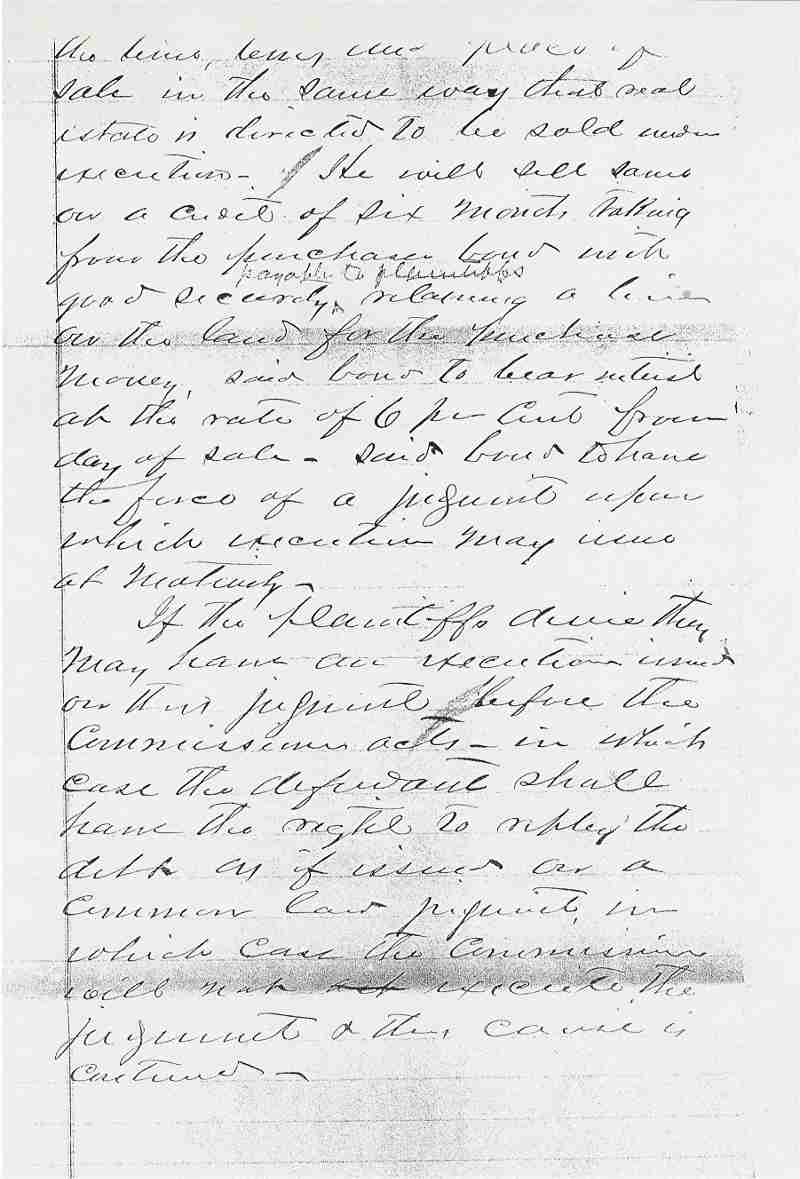 the time, terms and place of
sale in the same way that real
estate is directed to be sold under
execution - He will sell same
on a credit of six months taking
from the purchaser bond with
payable to plaintiffs
good security, retaining a lien
on the land for the purchase
money, said bond to bear interest
at the rate of 6 per cent from
day of sale - said bond to have
the force of a jugment upon
which execution may issue
at maturity -
If the plaintiffs desire they
may have an execution issued
on this jugment before the
Commissioner acts - in which
case the defendant shall
have the right to replevy the
debt as if issued on a
Common law jugment, in
which case the Commissioner
will not execute the
jugment & this cause is
continued -